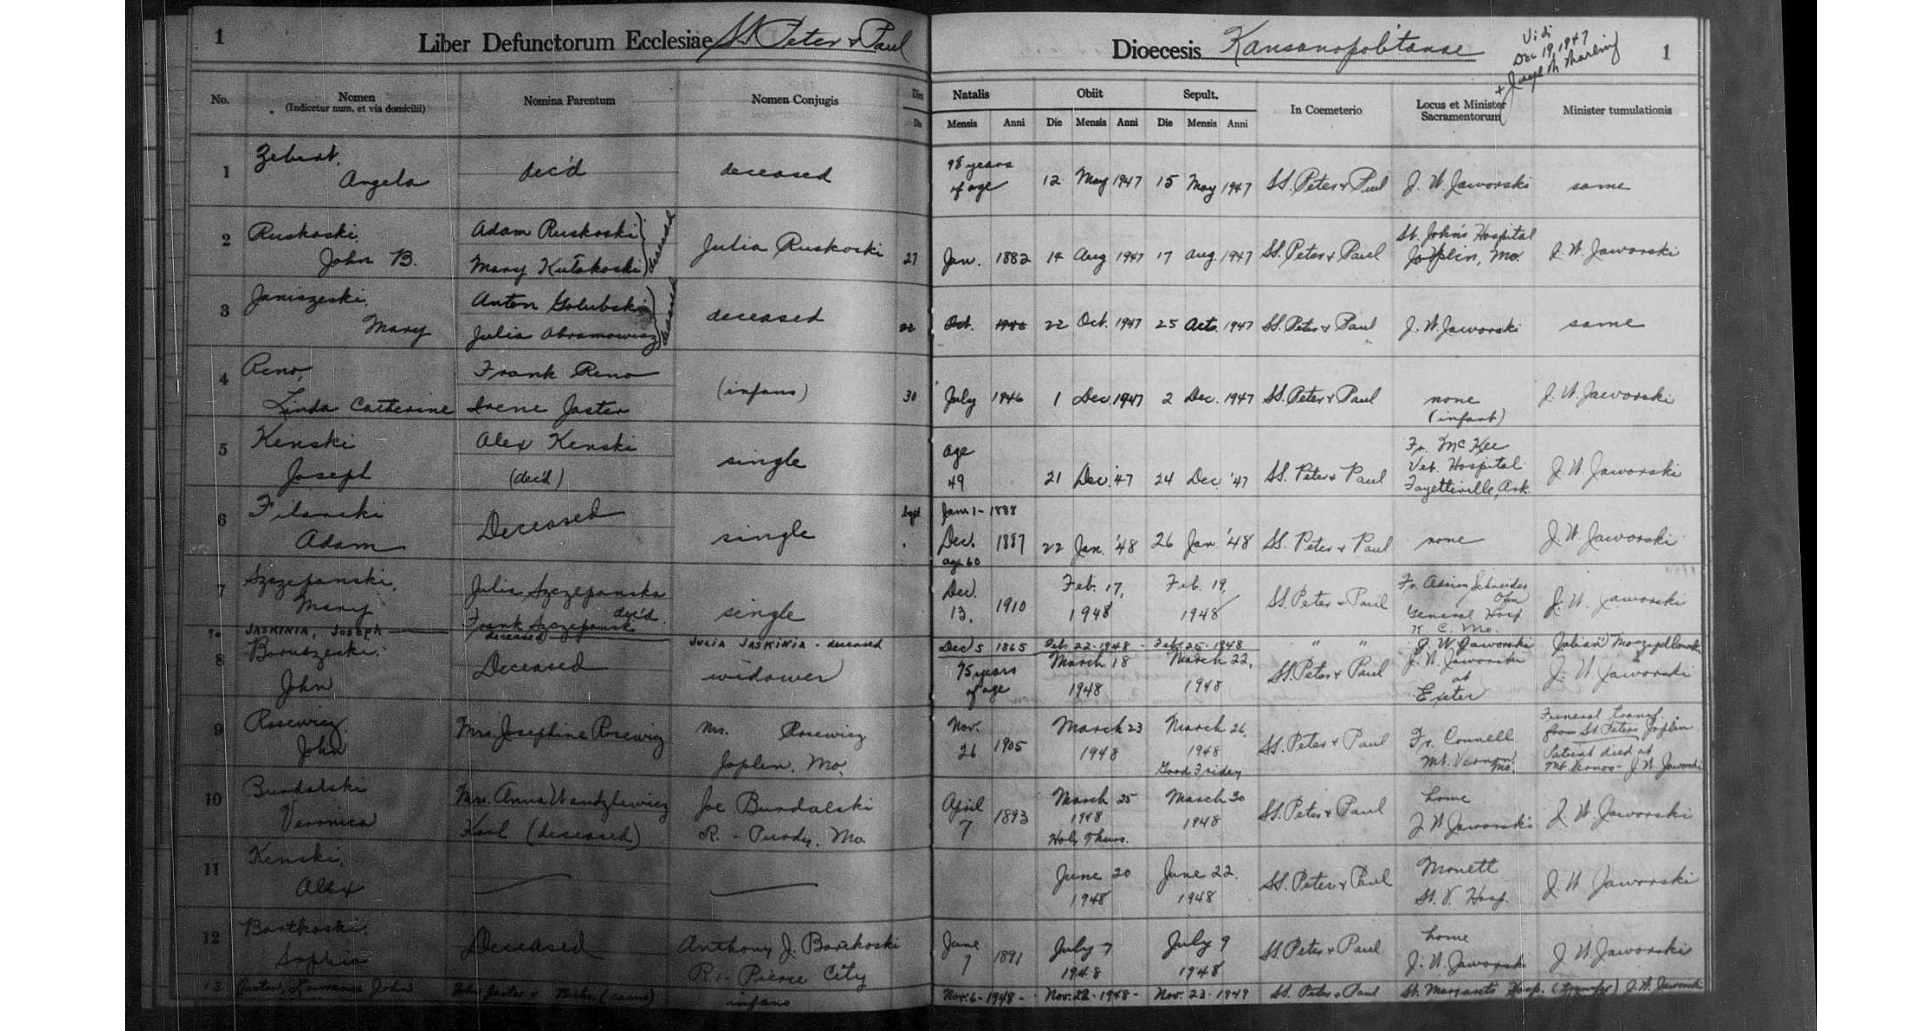 1 Liber Defunctorum Ecclesiae SS. Peter & Paul
Dioecesis Kansanopolitanae 1
Vidi
Dec 19, 1947
+ Joseph M Marling
No. Nomen Nomina Parentum Nomen Conjugis Natalis Obiit Sepult. In Coemeterio Locus et Minister Sacramentorum Minister tumulationis
(Indicetur num. et via domicilii)
Die Mensis Anni Die Mensis Anni Die Mensis Anni
1 Angela dec'd deceased 98 years of age 12 May 1947 15 May 1947 SS. Peter & Paul J. W. Jaworski same
2 Ruskoski, John B. Adam Ruskoski Mary Kutakoski deceased Julia Ruskoski 27 Jan. 1882 14 Aug 1947 17 Aug. 1947 SS. Peter & Paul St. John's Hospital Joplin, Mo. J. W. Jaworski
3 Janiszeski, Mary Anton Golubski Julia Abramowicz deceased deceased 22 Oct. 22 Oct. 1947 25 Octo. 1947 SS. Peter & Paul J. W. Jaworski same
4 Reno, Linda Catherine Frank Reno Irene Jaster (infans) 30 July 1946 1 Dec 1947 2 Dec. 1947 SS. Peter & Paul none (infant) J. W. Jaworski
5 Kenski Joseph Alex Kenski (dec'd) single age 49 21 Dec. '47 24 Dec. '47 SS. Peter & Paul Fr. McKee Vet. Hospital Fayetteville, Ark. J. W. Jaworski
6 Filanski Adam Deceased single bapt Jan. 1 - 1888 Dec. 1887 age 60 22 Jan. '48 26 Jan '48 SS. Peter & Paul none J. W. Jaworski
7 Szczepanski, Mary Julia Szczepanska Frank Szczepanski dec'd. (deceased) single Dec. 13, 1910 Feb. 17, 1948 Feb. 19, 1948 SS. Peter & Paul Fr. Adrian Schneider Ofm General Hosp. K C. Mo. J. W. Jaworski
7a JASKINIA, JOSEPH JULIA JASKINIA - deceased Dec 5 1865 Feb. 22 - 1948 - Feb. 25 - 1948 " " J. W. Jaworski Julian
8 Boruszeski, John Deceased widower 75 years of age March 18 1948 March 22, 1948 SS. Peter & Paul J. W. Jaworski at Exeter J. W. Jaworski
9 Rosewicz John Mrs. Josephine Rosewicz Mrs. Rosewicz Joplin, Mo. Nov. 26 1905 March 23 1948 March 26, 1948 Good Friday SS. Peter & Paul Fr. Connell Mt. Vernon Mo. Funeral transf. from St. Peters, Joplin Patient died at Mt. Vernon - J. W. Jaworski
10 Burdalski Veronica Mrs. Anna Wantzlewicz Karl (deceased) Joe Burdalski R. - Purdy, Mo. April 7 1893 March 25 1948 Holy Thurs. March 30 1948 SS. Peter & Paul home J W Jaworski J. W Jaworski
11 Kenski, Alex June 20 1948 June 22. 1948 SS. Peter & Paul Monett St. V. Hosp. J. W Jaworski
12 Bartkoski, Sophia Deceased Anthony J. Bartkoski R1. Pierce City June 7 1891 July 7 1948 July 9 1948 SS. Peter & Paul home J. W. Jaworski J. W Jaworski
13 Jaster, Lawrence John John Jaster & infans Nov. 6 - 1948 - Nov. 22 - 1948 - Nov. 23 - 1948 SS. Peter & Paul St. Margarets Hosp. (transfer) J. W. Jaworski